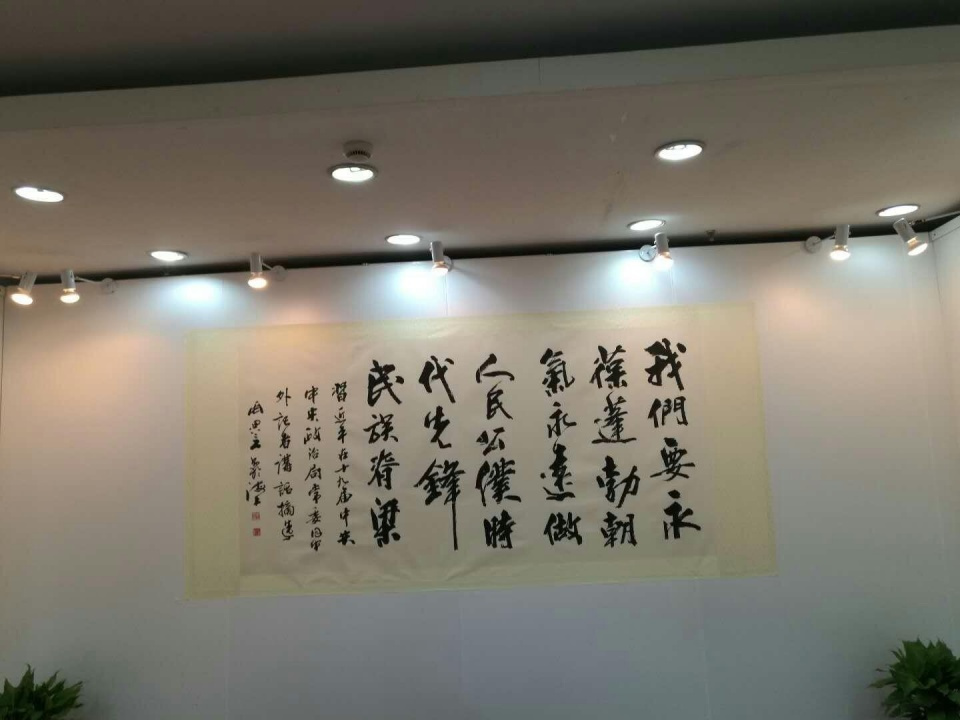 我們要永
葆蓬勃朝
氣永遠做
人民公僕時
代先鋒
民族脊梁
習近平在十九届中央
中央政治局常委同中
外記者講話摘選